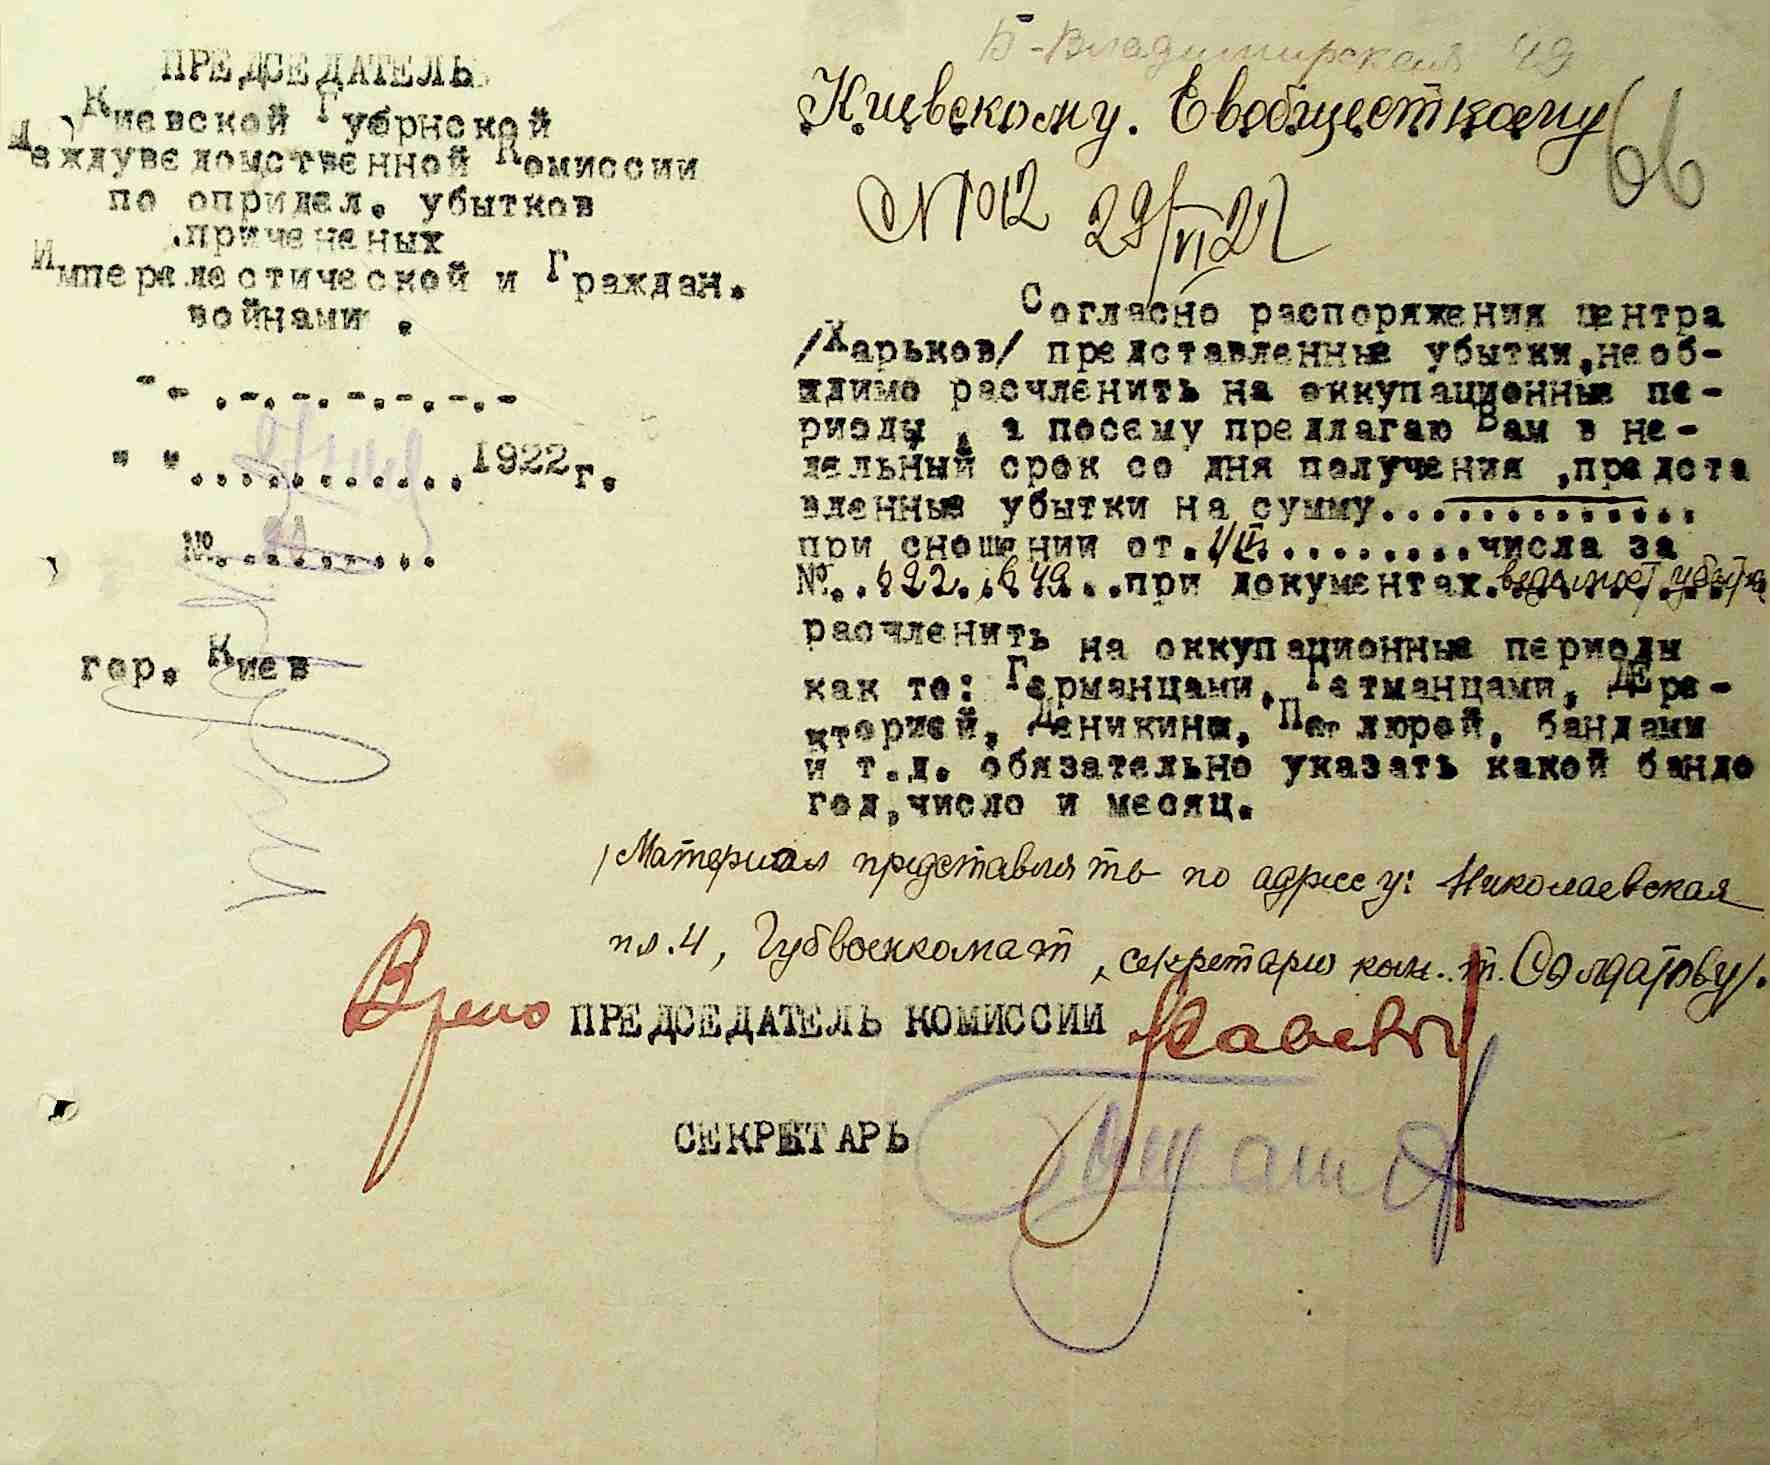 Б-Владимирская 49
ПРЕДСЕДАТЕЛЬ
Киевской Губрнской
Междуведомственной Комиссии
по опридел. убытков
.причененых
Империластической и Граждан.
войнами .
- - .-.-.-.-.-.-
" "............1922г.
№..........
гор. Киев
Киевскому. Евобщесткому
66
№ 1012 29/VI 22
Согласно распоряжения центра
/Харьков/ представленные убытки,необ-
ждимо расчленить на оккупационные пе-
риоды , а посему предлагаю Вам в не-
дельный срок со дня получения ,предста
вленные убытки на сумму..............
при сношении от. 1/III.........числа за
№..622..649..при документах.ведомост убытк
расчленить на оккупационные периоды
как то: Германцами, Гетманцами, ДЕре-
кторией, Деникины, Петлюрой, бандами
и т.д. обязательно указать какой бандо
год,число и месяц.
/Материал представлять по адресу: Николаевская
пл. 4, Губвоенкомат, секретарю ком. т. Солдатову/.
Врено ПРЕДСЕДАТЕЛЬ КОМИССИИ
СЕКРЕТАРЬ